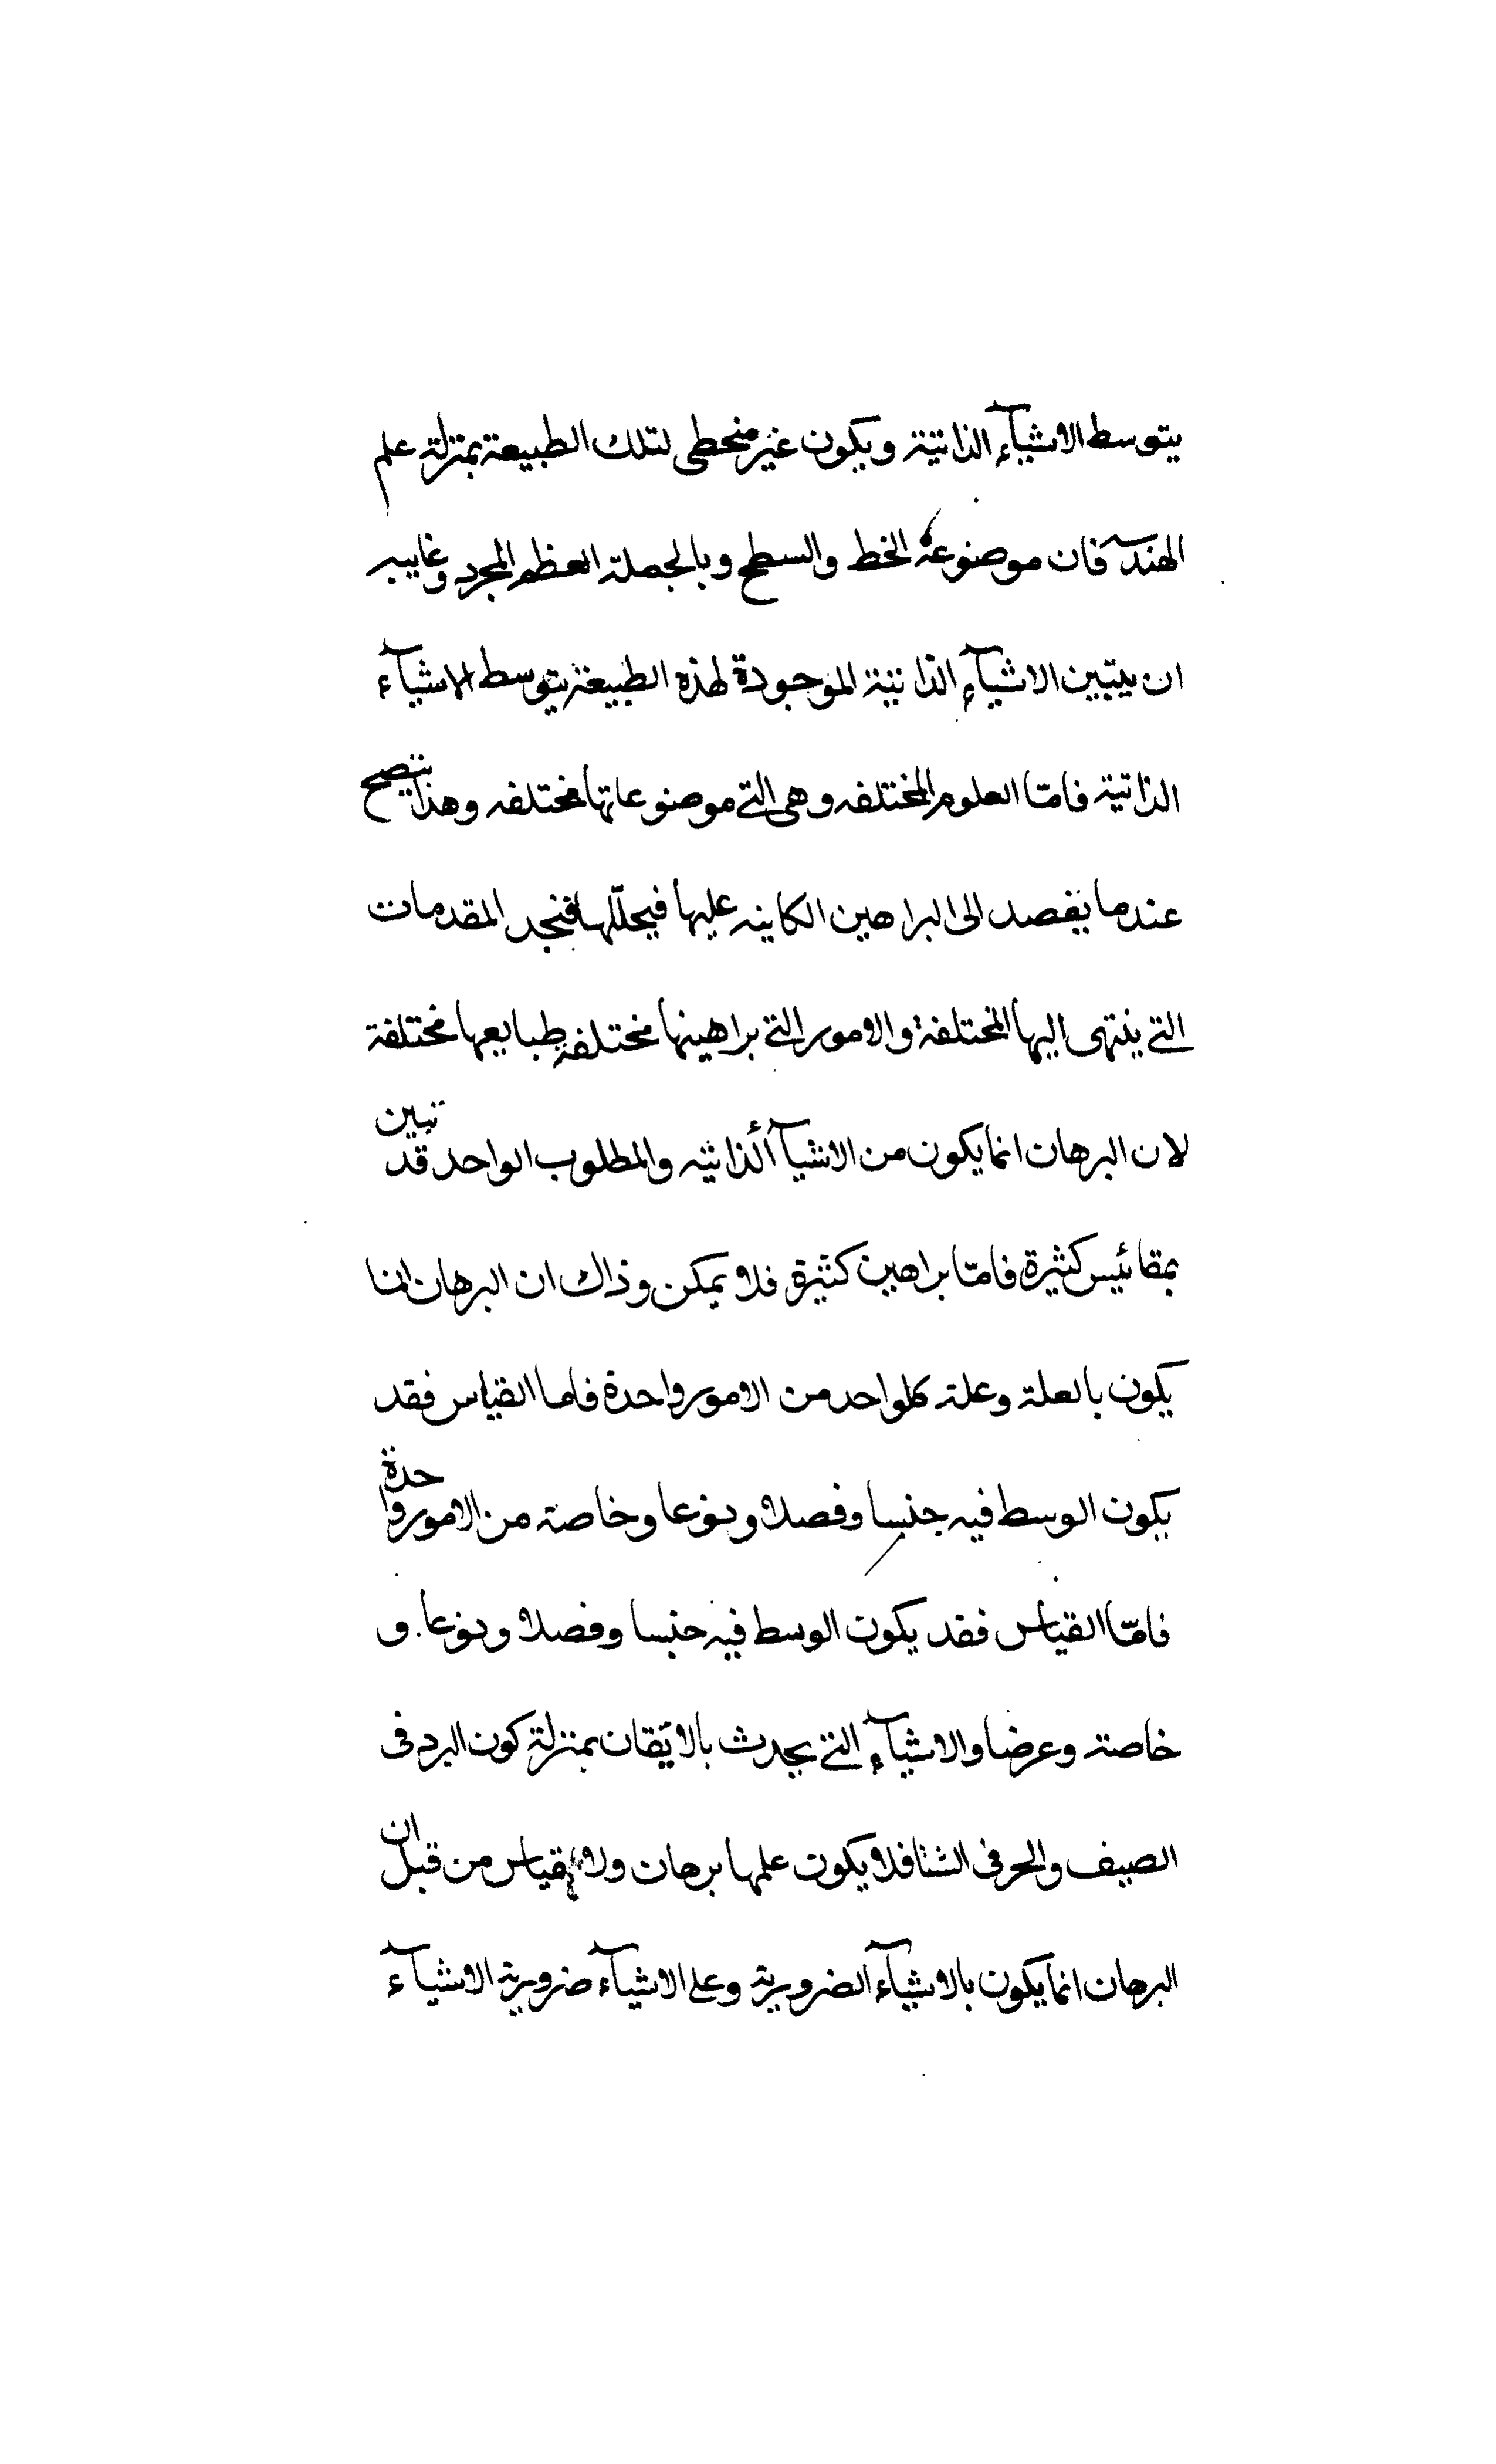 يتوسط الاشيآء الذاتية ويكون غير منحطى لتلك الطبيعة بمنزلة علم
الهندسه فان موضوعة الخط والسطح وبالجملة العظم المجرد وغايبه
ان يتبين الاشيآء الذاتية الموجودة لهذه الطبيعة يتوسط الاشيآء
الذاتية فامّا العلوم المختلفه وهى التى موضوعاتها مختلفه وهذا يتضح
عندما يقصد الى البراهين الكاينه عليها فيحلّلها فنجد المقدمات
التى ينتهى اليها المختلفة والامور التى براهينها مختلفة طبايعها مختلفة
لان البرهان انما يكون من الاشيآء الذاتيه والمطلوب الواحد قد تبين
بمقائيس كثيرة فامّا براهين كثيرة فلا يمكن وذاك ان البرهان انما
يكون بالعلة وعلة كلواحد من الامور واحدة فاما القياس فقد
يكون الوسط فيه جنسا وفصلا ونوعا وخاصة من الامور واحدة
فامّا القياس فقد يكون الوسط فيه جنسا وفصلا ونوعا. و
خاصة وعرضا والاشيآء التى يحدث بالاتقان بمنزلة كون البرد فى
الصيف والحر فى الشتا فلا يكون علمها برهان ولا قياس من قبل ان
البرهان انما يكون بالاشيآء الضرورية وعلى الاشيآء ضرورية الاشيآء